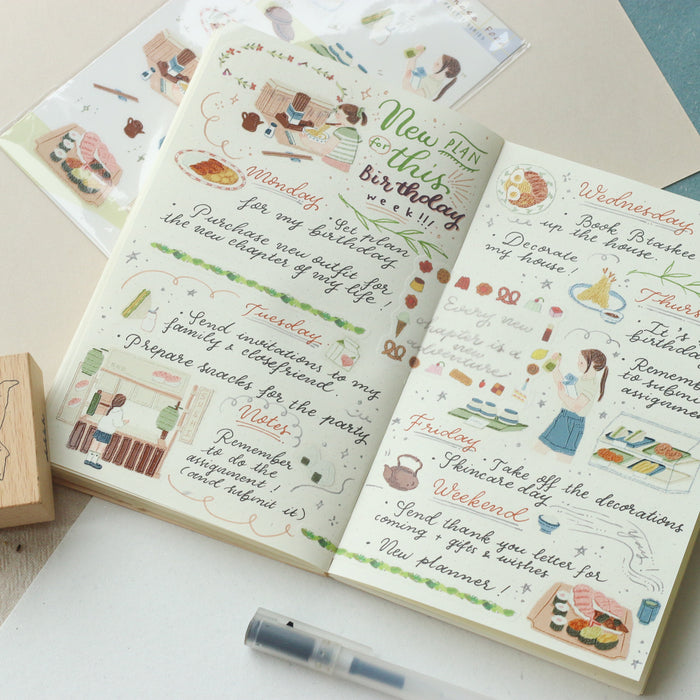 New PLAN
for this
Birthday
week!!!
Monday
· Set plan
for my birthday
· Purchase new outfit for
the new chapter of my life!
Tuesday
· Send invitations to my
family & closefriend.
Prepare snacks for the party
Notes
Remember
to do the
assignment!
(and submit it)
Wednesday
· Book Btaskee
up the house.
· Decorate
my house!
Thurs
It's
birthda
Every new
chapter is a
new
adventure
· Remem
to submi
assignm
Friday
· Take off the decorations
· Skincare day
Weekend
· Send thank you letter for
coming + gifts & wishes
· New planner!